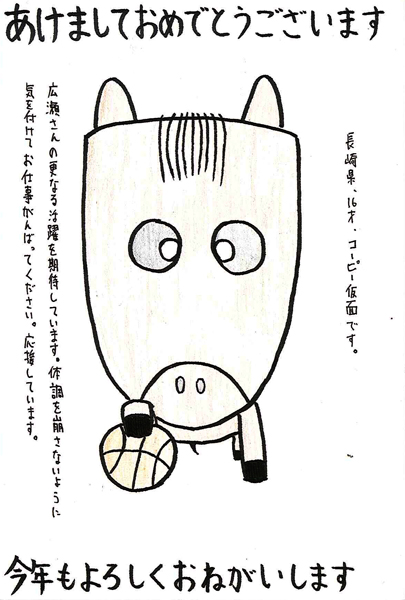 あけましておめでとうございます
長崎県、16才、コービー仮面です。
広瀬さんの更なる活躍を期待しています。体調を崩さないように
気を付けてお仕事がんばってください。応援しています。
今年もよろしくおねがいします